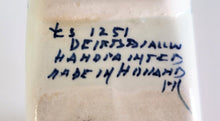 ks 1251
DELFTS BLAUW
HANDPAINTED
MADE IN HOLLAND